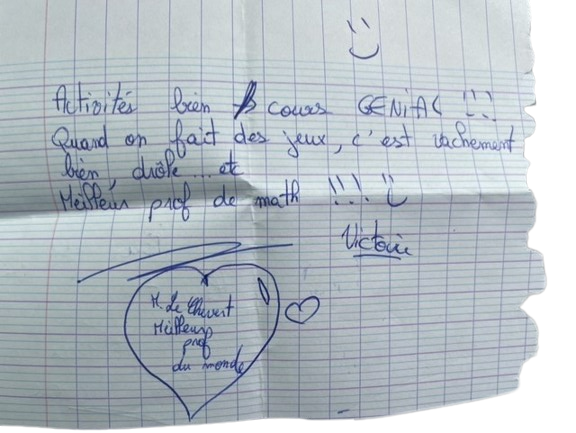 :)
Activités bien cours GENiAL !!!
Quand on fait des jeux, c'est vachement
bien, drôle... etc
Meilleur prof de math !!! :)
Victoire
M. Le
Meilleur
prof
du monde